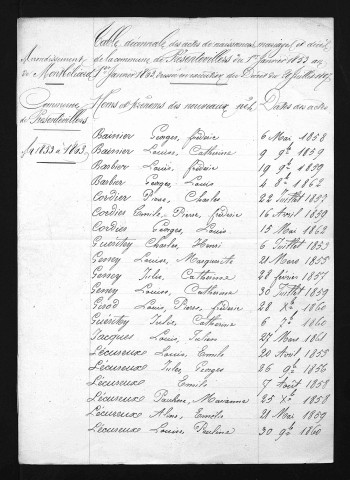 Table décennale des actes de naissances, mariages et décès
de la commune de Présentevillers du 1er Janvier 1853 au
1er Janvier 1863 dressée en exécution du Décret du 20 Juillet 1807
Arrondissement
de Montbéliard
Commune
de Présentevillers
1853 à 1863
Noms et prénoms des nouveaux nés
Dates des actes
Bainier Georges, fréderic 6 Mai 1858
Bainier Louise, Catherine 9 9e 1859
Barbier Louis, fréderic 19 9e 1859
Barbier Georges, Louis 4 8e 1862
Cordier Pierre, Charles 22 Juillet 1853
Cordier Emile, Pierre, fréderic 16 Avril 1859
Cordier Georges, Louis 15 Mai 1862
Guéritey Charles, Henri 6 Juillet 1853
Geney Louise, Marguerite 21 Mars 1855
Geney Julie, Catherine 28 février 1857
Geney Louise, Catherine 30 Juillet 1859
Girod Louis, Pierre, fréderic 28 Xe 1860
Guéritey Julie, Catherine 6 7e 1860
Jacques Louis, Julien 27 Mars 1861
Lécureux Louis, Emile 20 Avril 1855
Lécureux Jules, Georges 26 9e 1856
Lécureux Emile 7 Août 1858
Lécureux Pauline, Marianne 25 Xe 1858
Lécureux Aline, Emélie 21 Mai 1859
Lécureux Louise Pauline 30 9e 1860